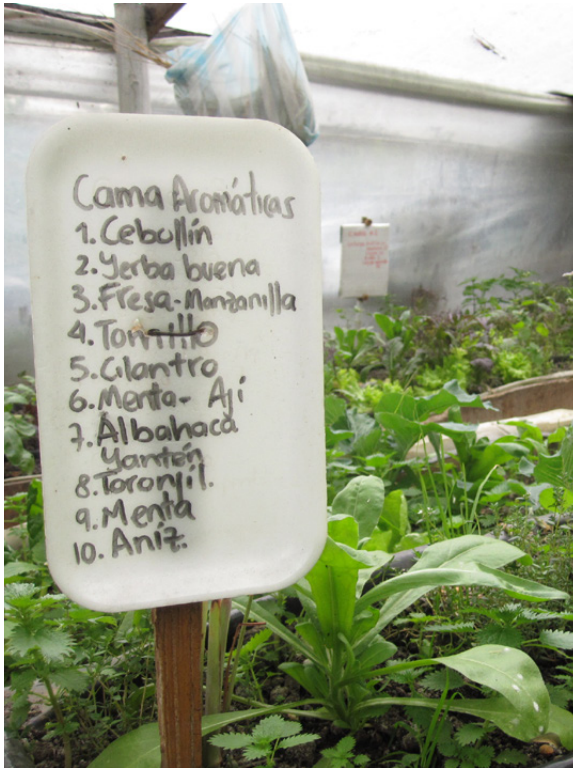 Cama Aromáticas
1. Cebollín
2. Yerba buena
3. Fresa-Manzanilla
4. Tomillo
5. Cilantro
6. Menta- Ají
7. Albahaca
Yantén
8. Toronjil.
9. Menta
10. Aníz.